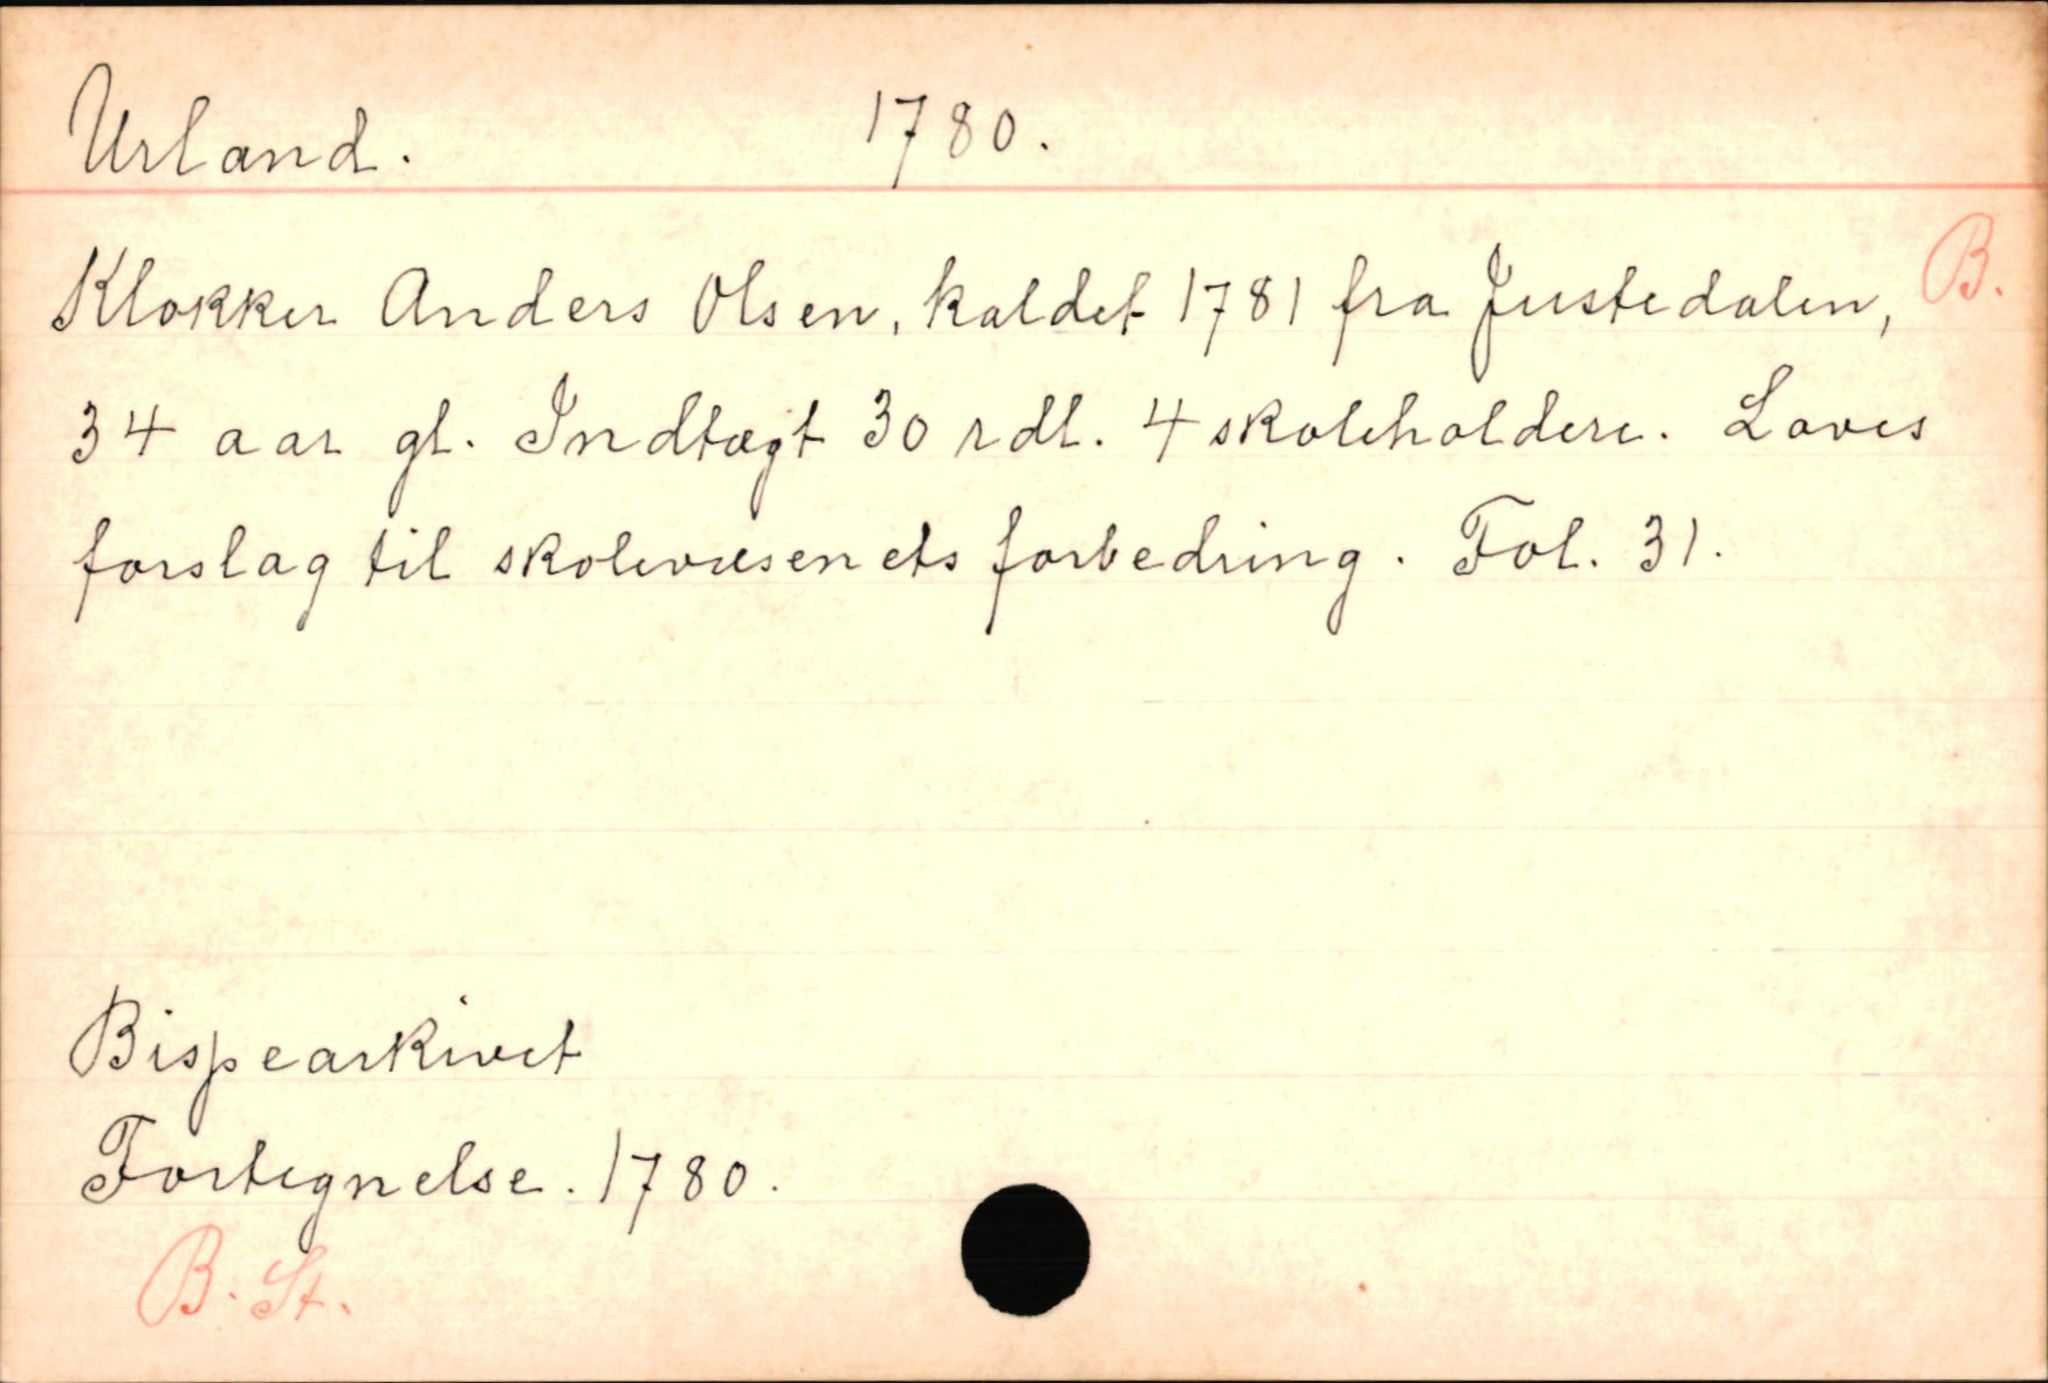 Urland. 1780.
Klokker Anders Olsen, kaldet 1781 fra Justedalen, B.
34 aar gl. Indtægt 30 rdl. 4 skoleholdere. Loves
forslag til skolevæsenets forbedring. Fol. 31.
Bispearkivet
Fortegnelse. 1780.
B. St.